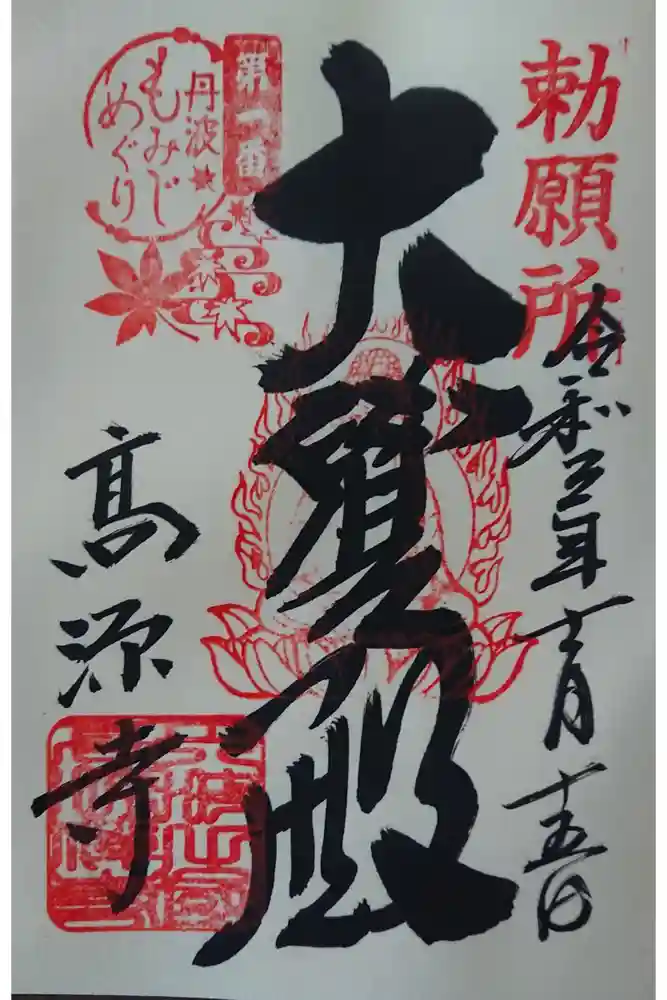 勅願所
令和三年十一月十五日
大寶殿
第一番
丹波
もみじ
めぐり
高源寺